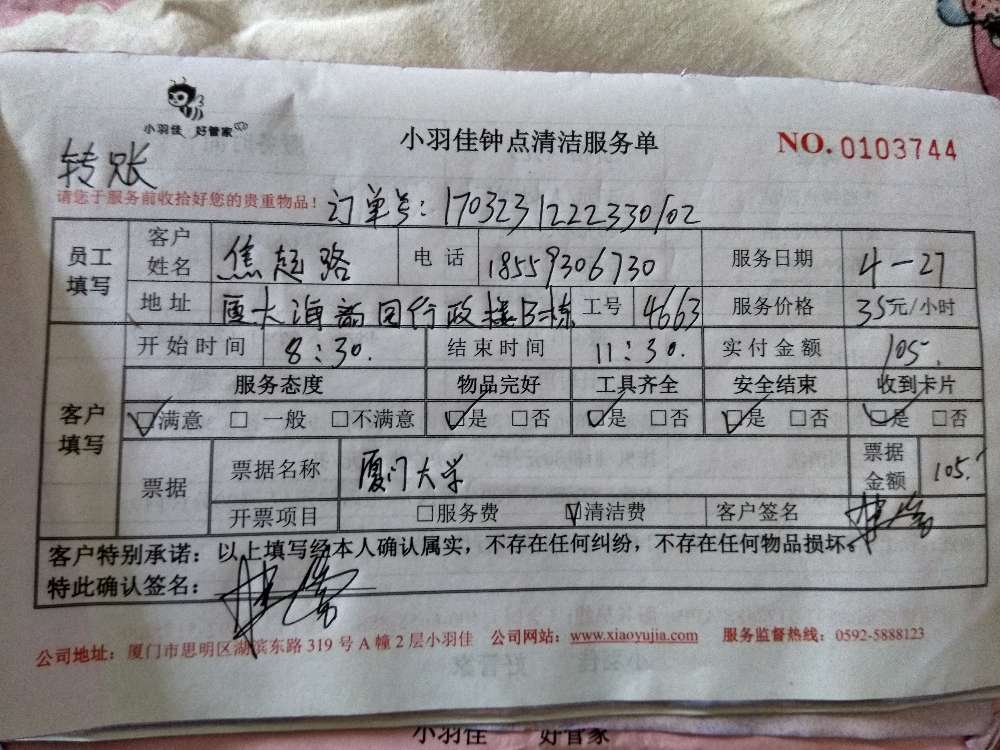 小羽佳 好管家
小羽佳钟点清洁服务单
NO.0103744
转账
请您于服务前收拾好您的贵重物品！
订单号：170323122233010２
员工填写 客户姓名 焦超路 电话 18559306730 服务日期 4-27
地址 厦大海韵园行政楼B栋 工号 4663 服务价格 35元/小时
客户填写 开始时间 8:30. 结束时间 11:30. 实付金额 105.
服务态度 物品完好 工具齐全 安全结束 收到卡片
☑满意 □一般 □不满意 ☑是 □否 ☑是 □否 ☑是 □否 ☑是 □否
票据 票据名称 厦门大学 票据金额 105.
开票项目 □服务费 ☑清洁费 客户签名
客户特别承诺：以上填写经本人确认属实，不存在任何纠纷，不存在任何物品损坏。
特此确认签名：
公司地址：厦门市思明区湖滨东路 319 号 A 幢 2 层小羽佳 公司网站：www.xiaoyujia.com 服务监督热线：0592-5888123
小羽佳 好管家